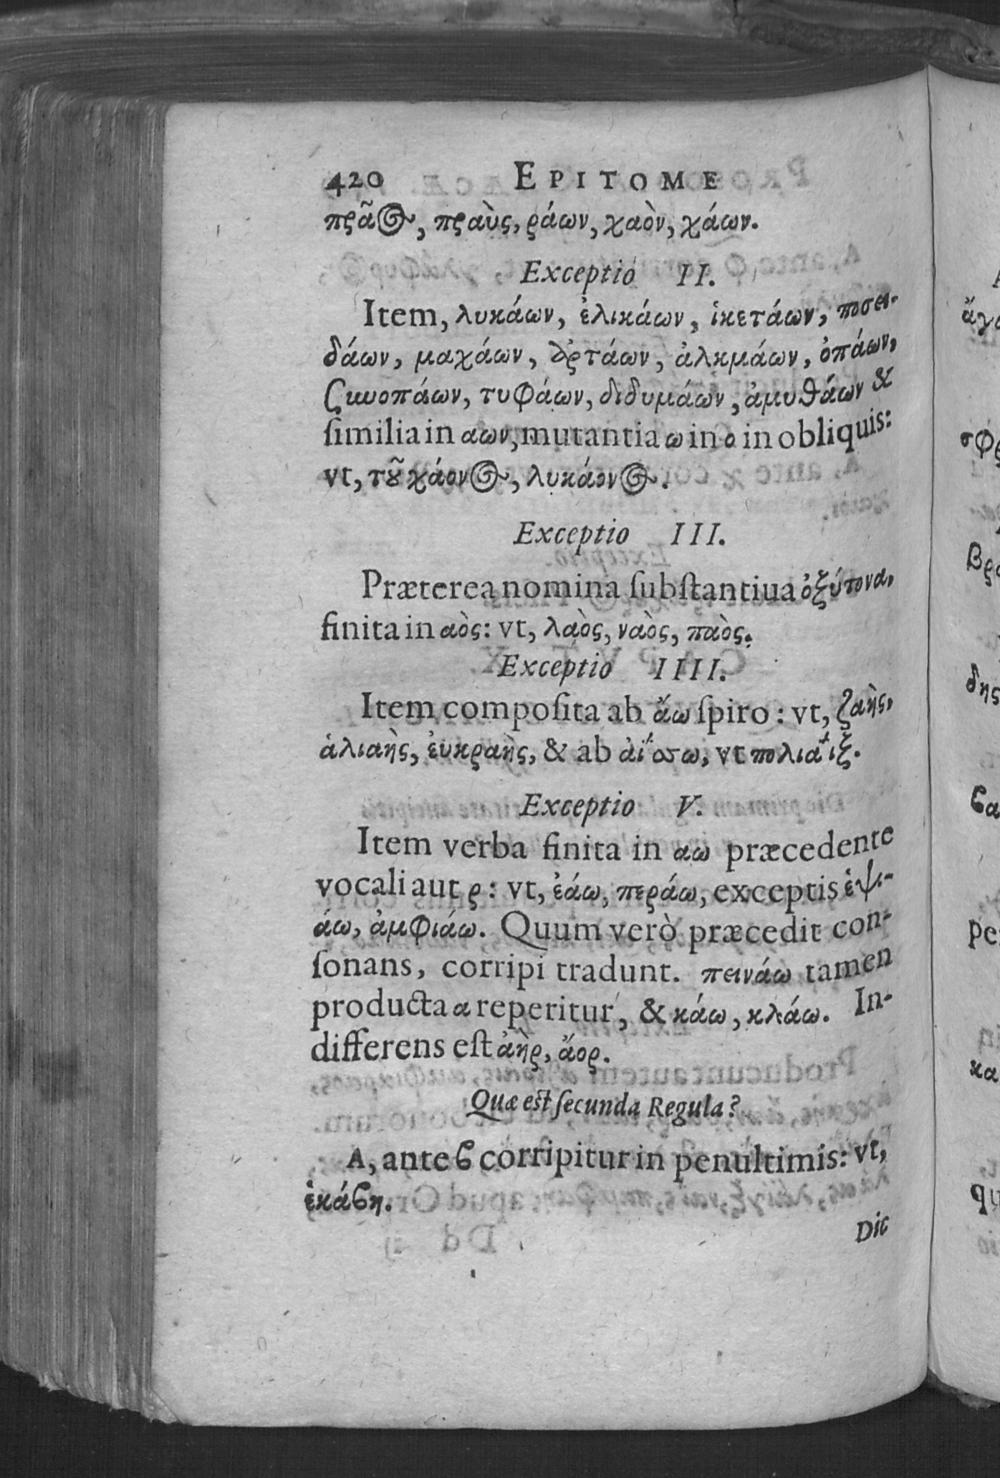 420 EPITOME
πρᾶος, πραὺς, ῥάων, χαὸν, χάων.
Exceptio II.
Item, λυκάων, ἑλικάων, ἱκετάων, ποσει-
δάων, μαχάων, ἀρτάων, ἀλκμάων, ὀπάων,
ξυνοπάων, τυφάων, διδυμάων, ἀμυθάων &
similia in αων, mutantia ω in ο in obliquis:
vt, τοῦ χάονος, λυκάονος.
Exceptio III.
Præterea nomina substantiua ὀξύτονα,
finita in αὸς: vt, λαὸς, ναὸς, παὸς.
Exceptio IIII.
Item composita ab ἄω spiro: vt, ζαὴς,
ἁλιαὴς, ἐυκραὴς, & ab ἀΐσσω, vt πολιάϊξ.
Exceptio V.
Item verba finita in αω præcedente
vocali aut ρ: vt, ἐάω, περάω, exceptis ἑψι-
άω, ἀμφιάω. Quum verò præcedit con-
sonans, corripi tradunt. πεινάω tamen
producta α reperitur, & κάω, κλάω. In-
differens est ἀὴρ, ἄορ.
Quæ est secunda Regula?
A, ante ϐ corripitur in penultimis: vt,
ἑκάϐη.
Dic